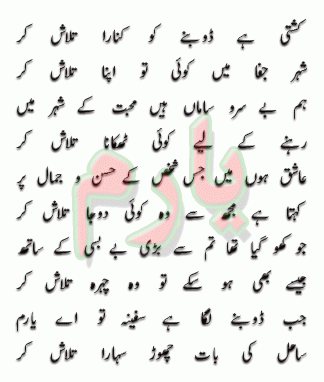 کشتی ہے ڈوبنے کو کنارا تلاش کر
شہر جفا میں کوئی تو اپنا تلاش کر
ہم بے سرو ساماں ہیں محبت کے شہر میں
رہنے کے لیے کوئی ٹھکانا تلاش کر
عاشق ہوں میں جس شخص کے حسن و جمال پر
کہتا ہے مجھ سے وہ کوئی دوجا تلاش کر
جو کھو گیا تھا تم سے بڑی بے بسی کے ساتھ
جیسے بھی ہو سکے تو وہ چہرہ تلاش کر
جب ڈوبنے لگا ہے سفینہ تو اے یارم
ساحل کی بات چھوڑ سہارا تلاش کر
یارم